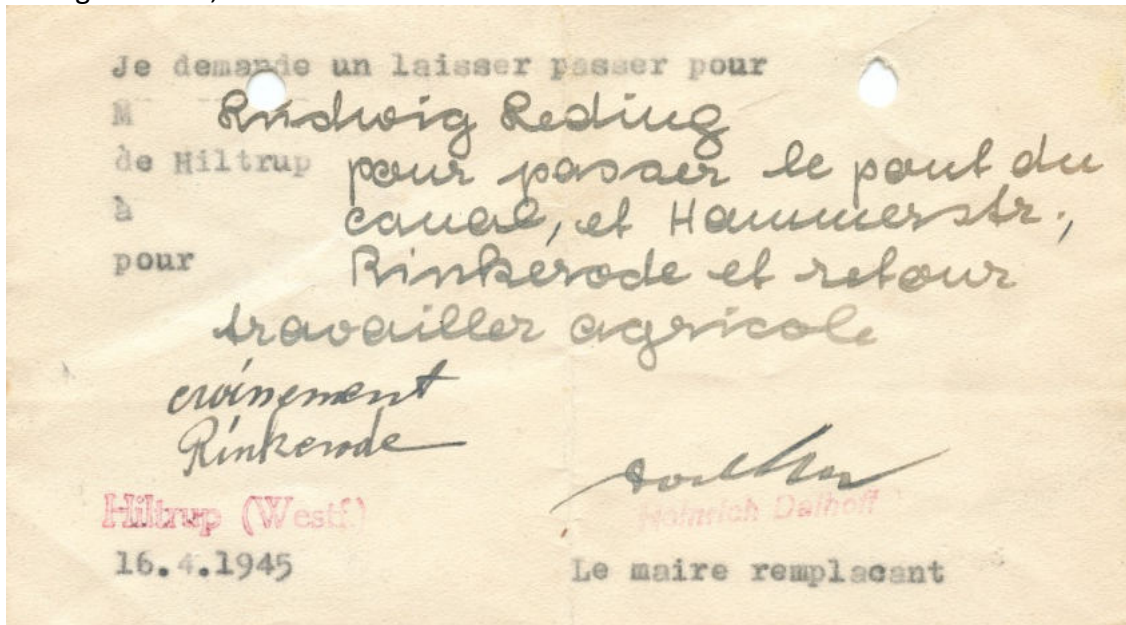 Je demande un laisser passer pour
M Ludwig Reding
de Hiltrup pour passer le pont du
à canal, et Hammerstr.,
pour Rinkerode et retour
travailler agricole
Rinkerode
Hiltrup (Westf.)
Heinrich Dalhoff
16.4.1945
Le maire remplacant